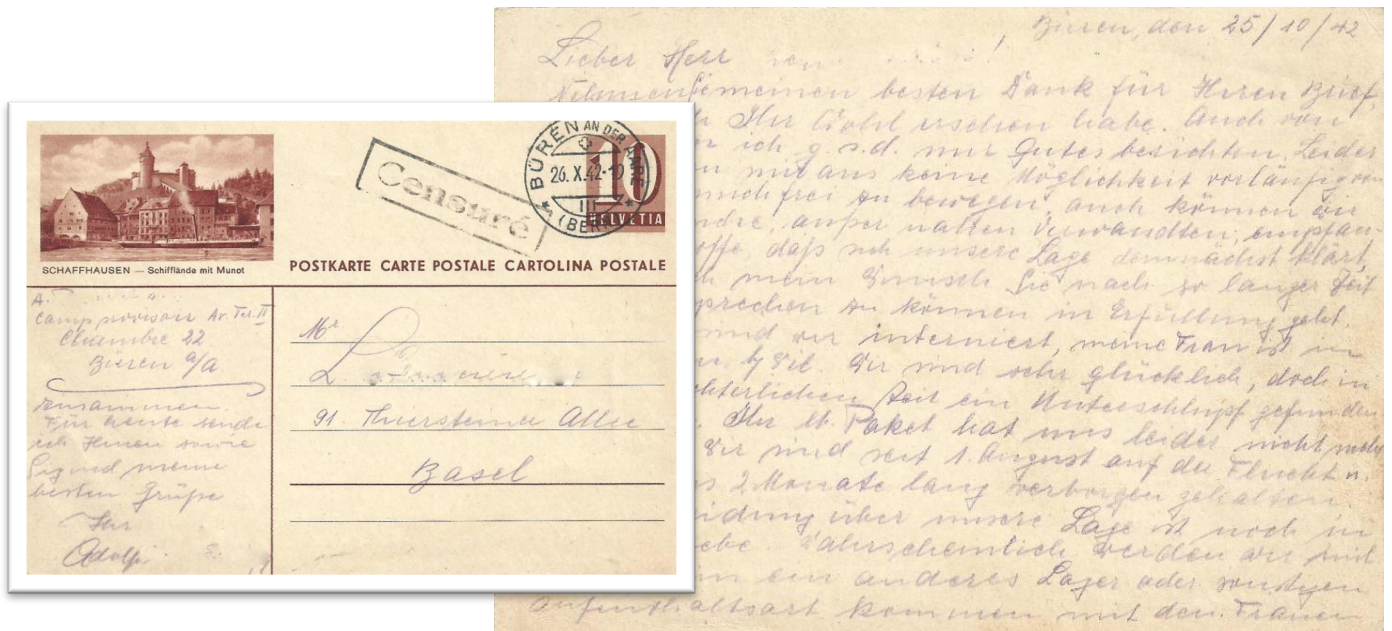 SCHAFFHAUSEN — Schifflände mit Munot
Censuré
BÜREN AN DER AARE
26. X. 42 - 19
III
(BERN)
10
HELVETIA
POSTKARTE CARTE POSTALE CARTOLINA POSTALE
A.
Chambre 22
Büren a/A
zusammen.
Für heute sende
ich Ihnen sowie
Sigrid meine
besten Grüße
Ihr
Adolf
Mr
91. Thiersteiner Allee
Basel
Büren, den 25/10/42
Lieber Herr
meinen besten Dank für Ihren Brief,
Ihr Wohl ersehen habe. Auch von
ich g.s.d. nur Gutes berichten. Leider
keine Möglichkeit vorläufig von
frei zu bewegen, auch können wir
außer nahen Verwandten, empfan-
daß sich unsere Lage demnächst klärt,
mein Wunsch Sie nach so langer Zeit
sprechen zu können in Erfüllung geht.
sind wir interniert, meine Frau ist in
Wir sind sehr glücklich, doch in
Zeit ein Unterschlupf gefunden
Ihr lb. Paket hat uns leider nicht mehr
Wir sind seit 1. August auf der Flucht u.
2 Monate lang verborgen gehalten
über unsere Lage ist noch in
Wahrscheinlich werden wir mit
in ein anderes Lager oder sonstigen
Aufenthaltsort kommen mit den Frauen